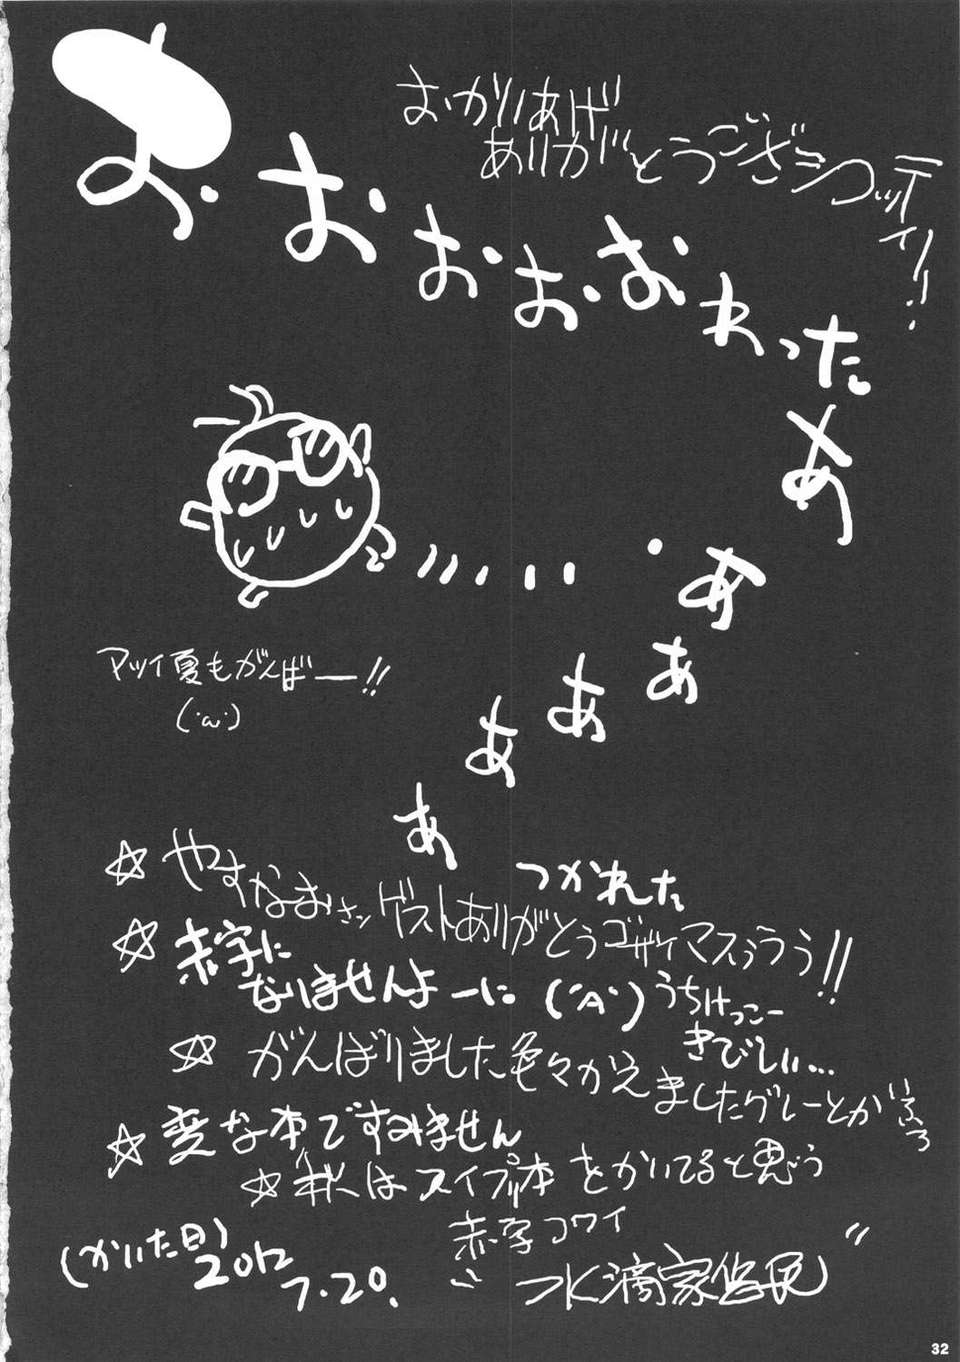 おかいあげ
ありがとうござシコッティ!!
お・おおお・おわった
ああぁあああ
アツイ夏もがんばー!!
(・ω・)
つかれた
☆やすなおさンゲストありがとうゴザイマスぅうぅ!!
☆赤字に
なりませんよーに (・A・) うちけっこー
きびしい…
☆がんばりました色々かえましたグレーとか
☆変な本ですみません
☆はスイプリ本をかいてると思う
赤字コワイ
(かいた日)
2012
7.20.
水滴家
32